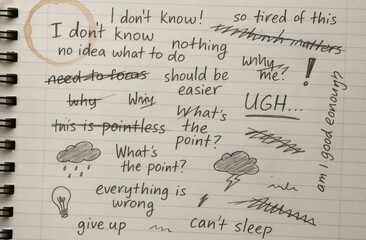 I don't know!
so tired of this
I don't know
nothing
no idea what to do
why me?
need to focus
should be
easier
why
Why
UGH...
What's
the
point?
this is pointless
am I good eonough
What's
the point?
everything is
wrong
give up
can't sleep